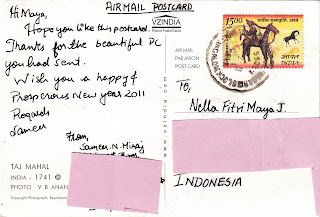 AIRMAIL POSTCARD
Hi Maya,
Hope you like this postcard.
Thanks for the beautiful PC
you had sent.
Wish you a happy &
Prosperous New Year 2011
Regards
Sameer
From,
Sameer. N. Miraj
TAJ MAHAL
INDIA - 1741 ©
PHOTO V B ANAN
Copyright Photograph, Reproduct
VZINDIA
Picture Postcards
www.vzindia.com
AIR MAIL
PAR AVION
POST CARD
1500
भारत
INDIA
TO,
Nella Fitri Maya J.
INDONESIA